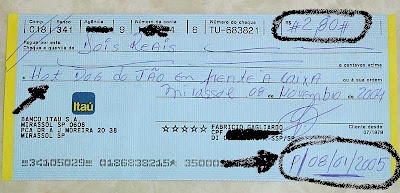 Comp Banco Agência Número da conta Número do cheque R$
018 341 9 4 6 TU-683821 #2,80#
Pague por este
Cheque a quantia de Dois Reais
e centavos acima
a Hot Dog do JÃO em frente a CAIXA ou à sua ordem
Mirassol 08 de Novembro de 2004
Itaú
BANCO ITAÚ S.A.
MIRASSOL SP 0608
PCA DR A J MOREIRA 20 38
MIRASSOL SP
☆☆☆☆☆ FABRICIO GAGLIARDO
CPF
DI SSP/SP
Cliente desde
07/1979
P/08/01/2005
34105029 0186838215 35000